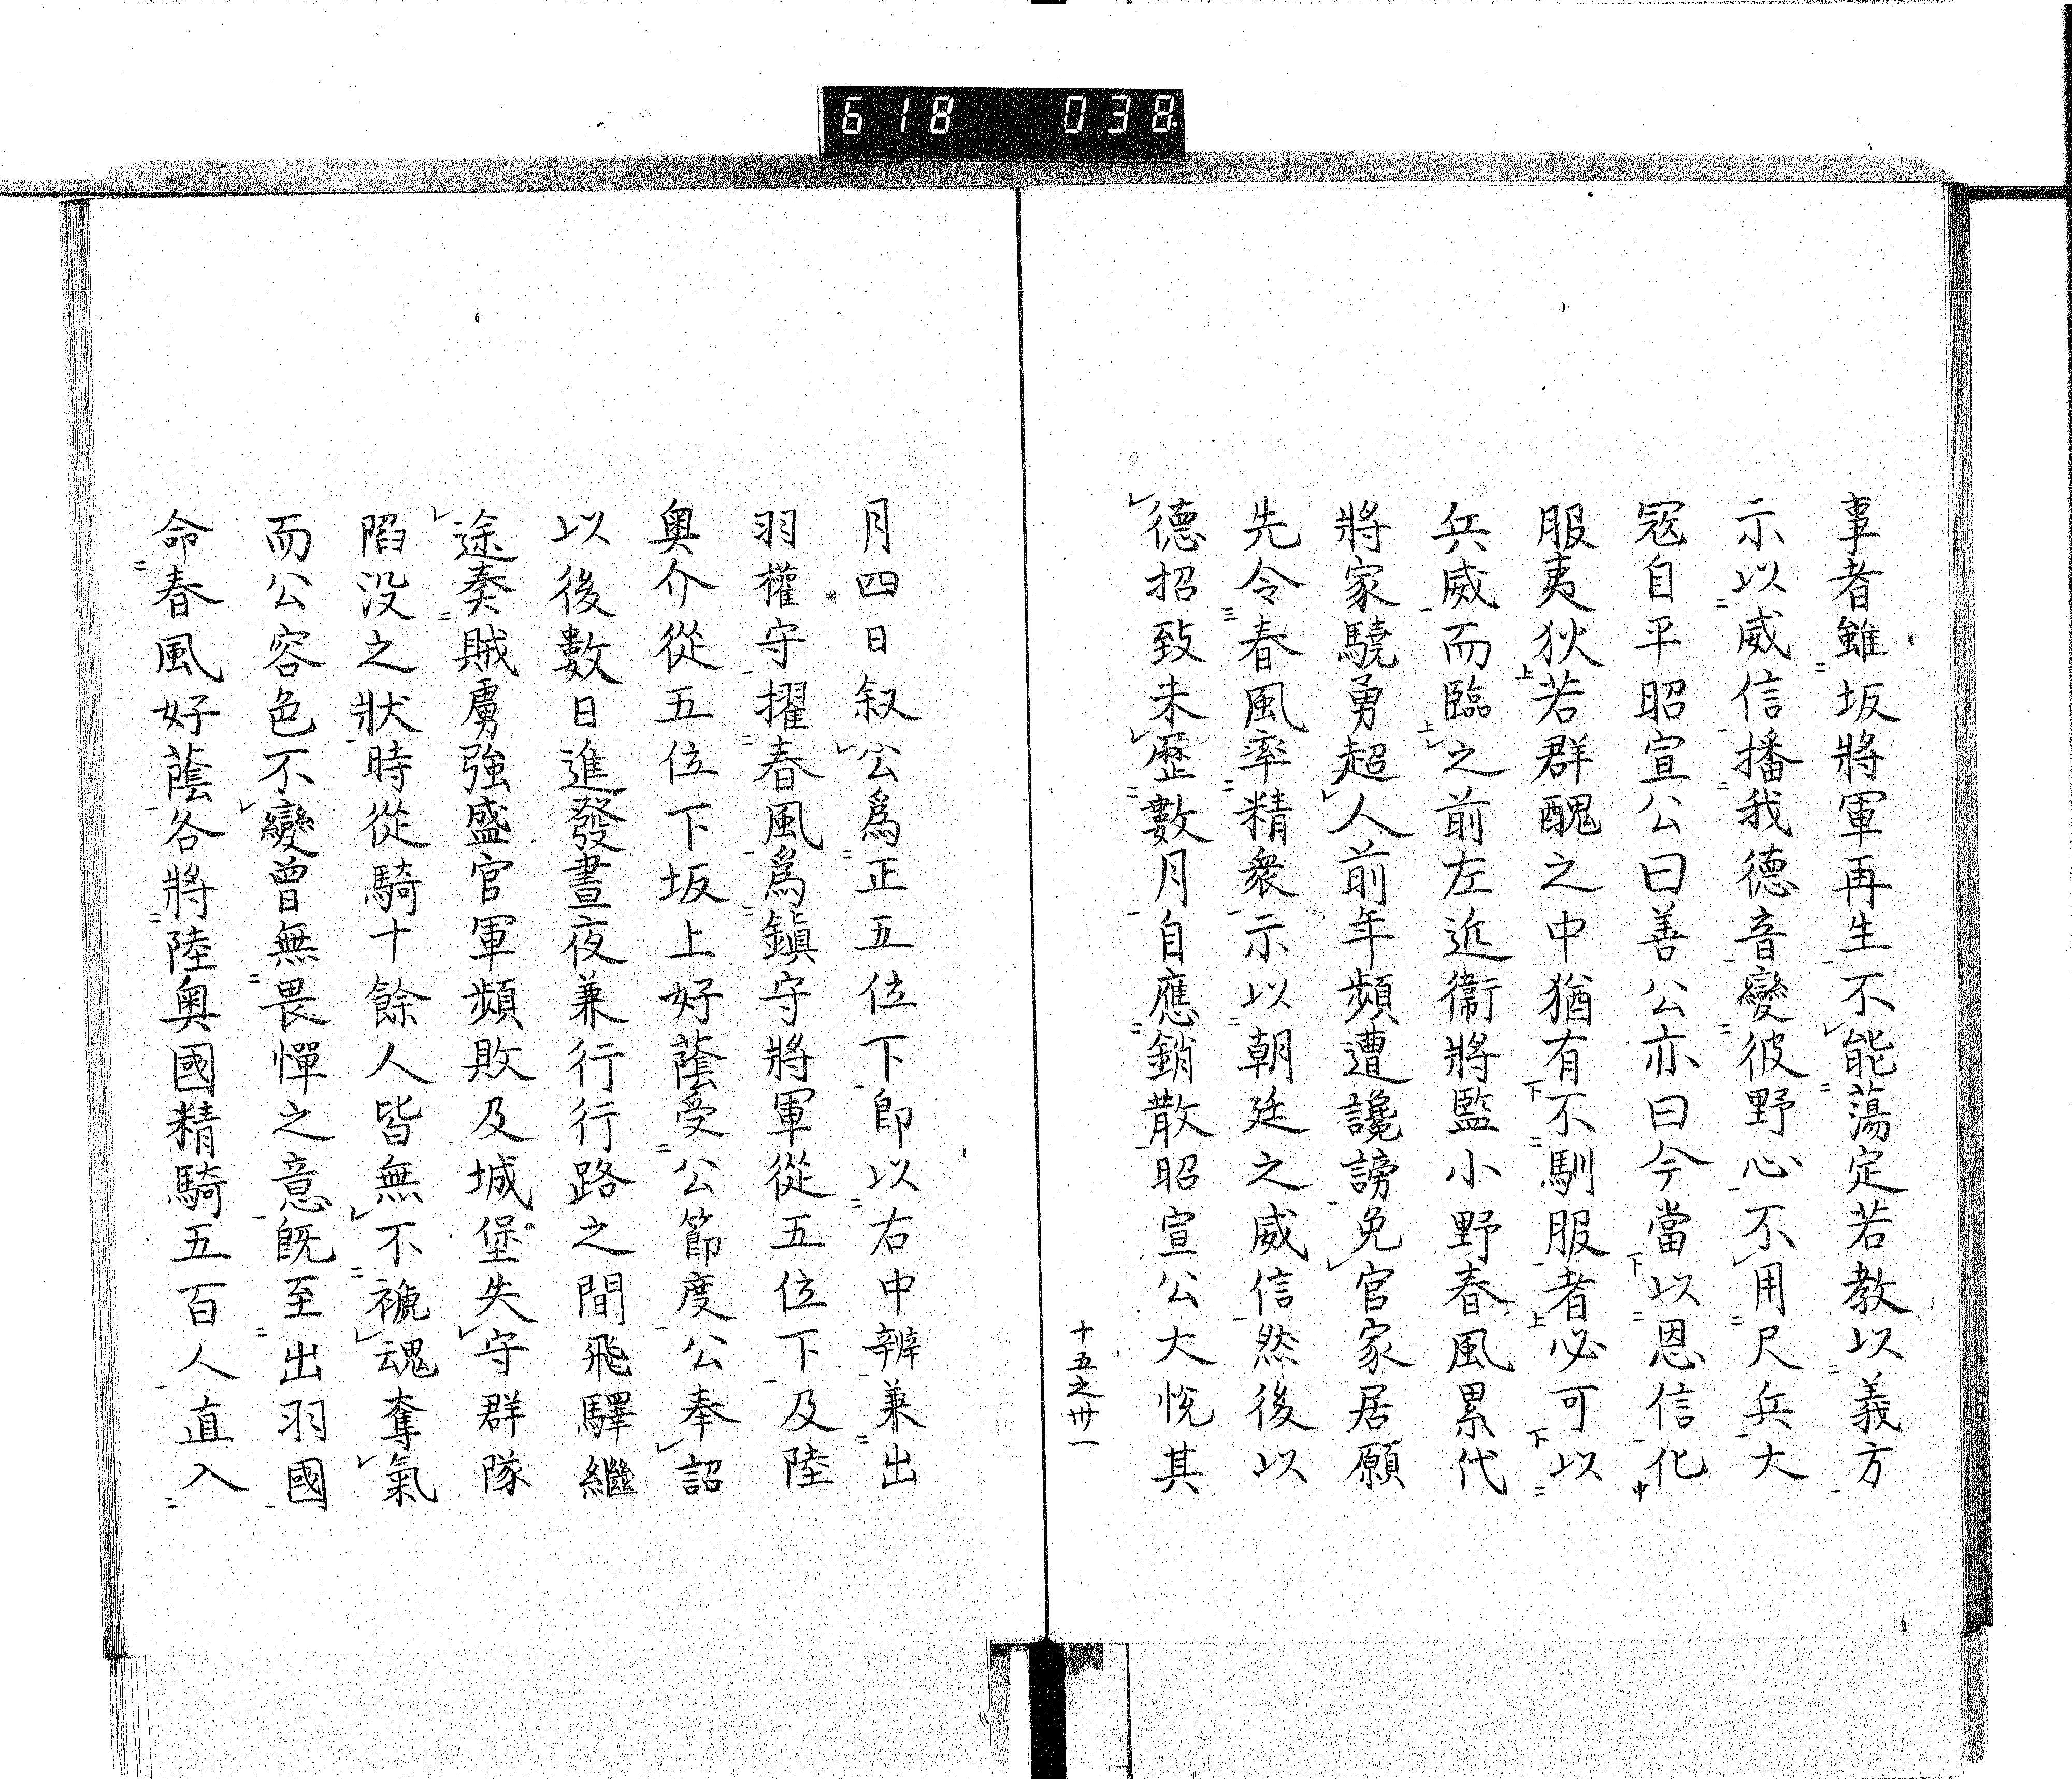 618 038
事者雖坂將軍再生不能蕩定若教以義方
示以威信播我德音變彼野心不用尺兵大
寇自平昭宣公曰善公亦曰今當以恩信化
服夷狄若群醜之中猶有不馴服者必可以
兵威而臨之前左近衞將監小野春風累代
將家驍勇超人前年頻遭讒謗免官家居願
先令春風率精衆示以朝廷之威信然後以
德招致未歷數月自應銷散昭宣公大悅其
十五之卅一
月四日叙公爲正五位下即以右中辨兼出
羽權守擢春風爲鎭守將軍從五位下及陸
奥介從五位下坂上好蔭受公節度公奉詔
以後數日進發晝夜兼行行路之間飛驛繼
途奏賊虜強盛官軍頻敗及城堡失守群隊
陷没之狀時從騎十餘人皆無不褫魂奪氣
而公容色不變曾無畏憚之意既至出羽國
命春風好蔭各將陸奥國精騎五百人直入